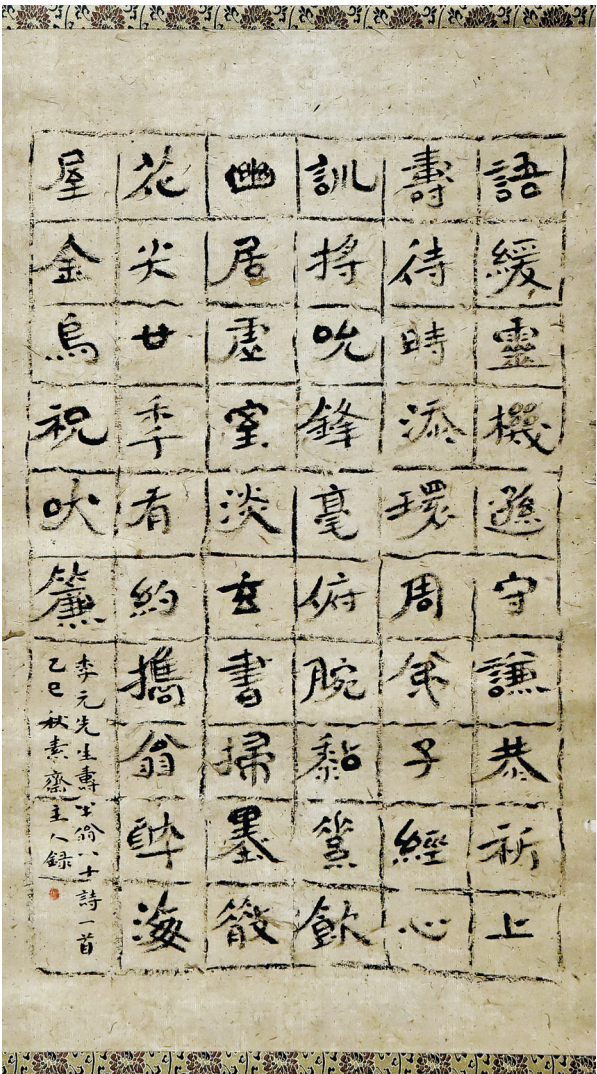 語緩靈機遜守謙恭祈上
壽待時添環周子經心
訓將吮鋒毫俯腕黏箋飲
幽居虛室淡玄書掃墨
花尖廿秊看約攜翁醉海
屋金烏祝簾
李元先生壽翁八十詩一首
乙巳秋素齋主人錄